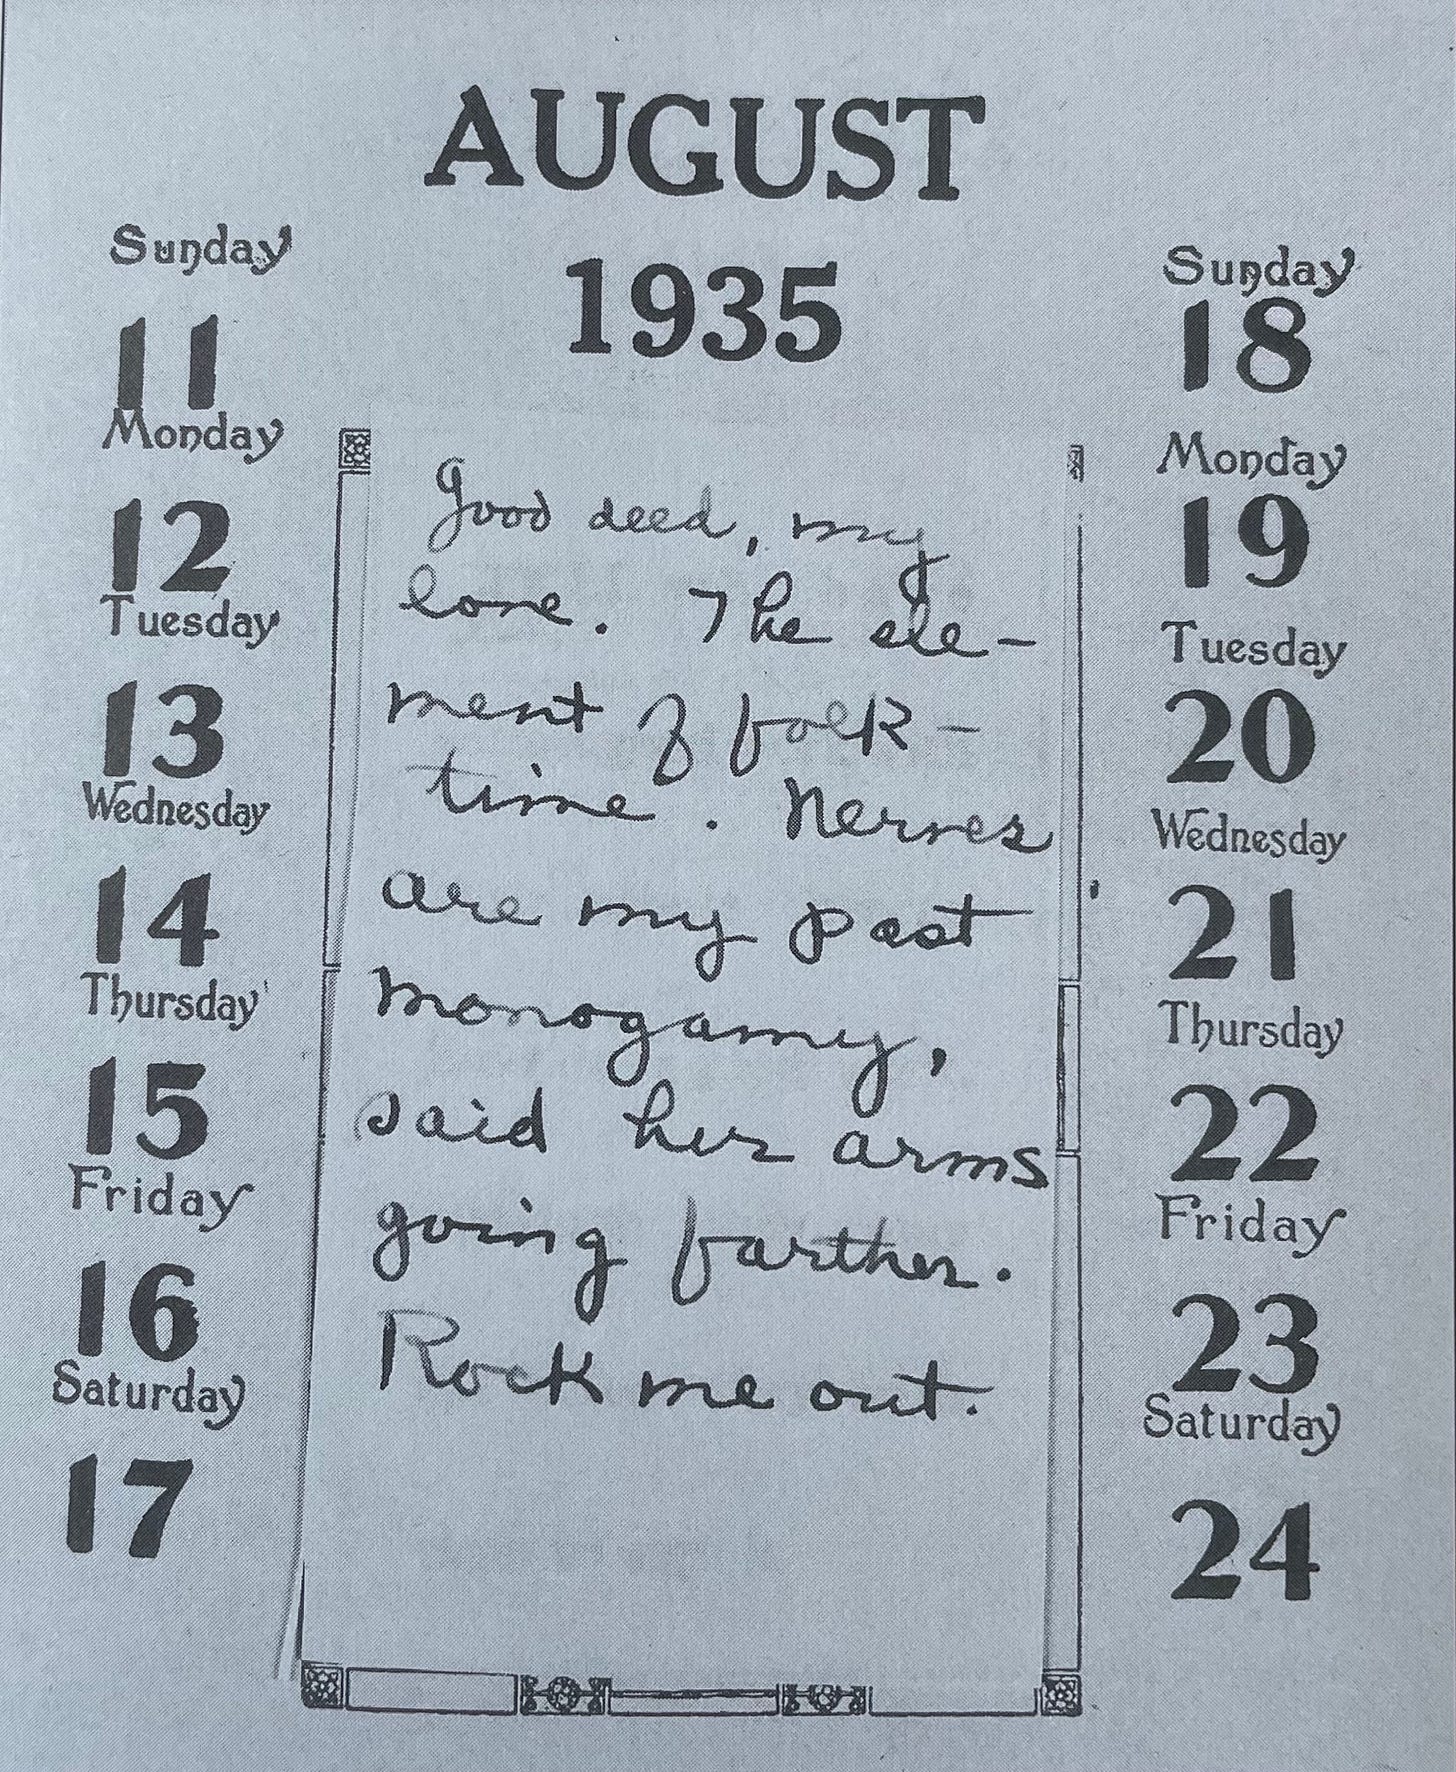 AUGUST
1935
Sunday
11
Monday
12
Tuesday
13
Wednesday
14
Thursday
15
Friday
16
Saturday
17
Good deed, my
love. The ele-
ment of folk-
time. Nerves
are my past
monogamy,
said her arms
going farther.
Rock me out.
Sunday
18
Monday
19
Tuesday
20
Wednesday
21
Thursday
22
Friday
23
Saturday
24